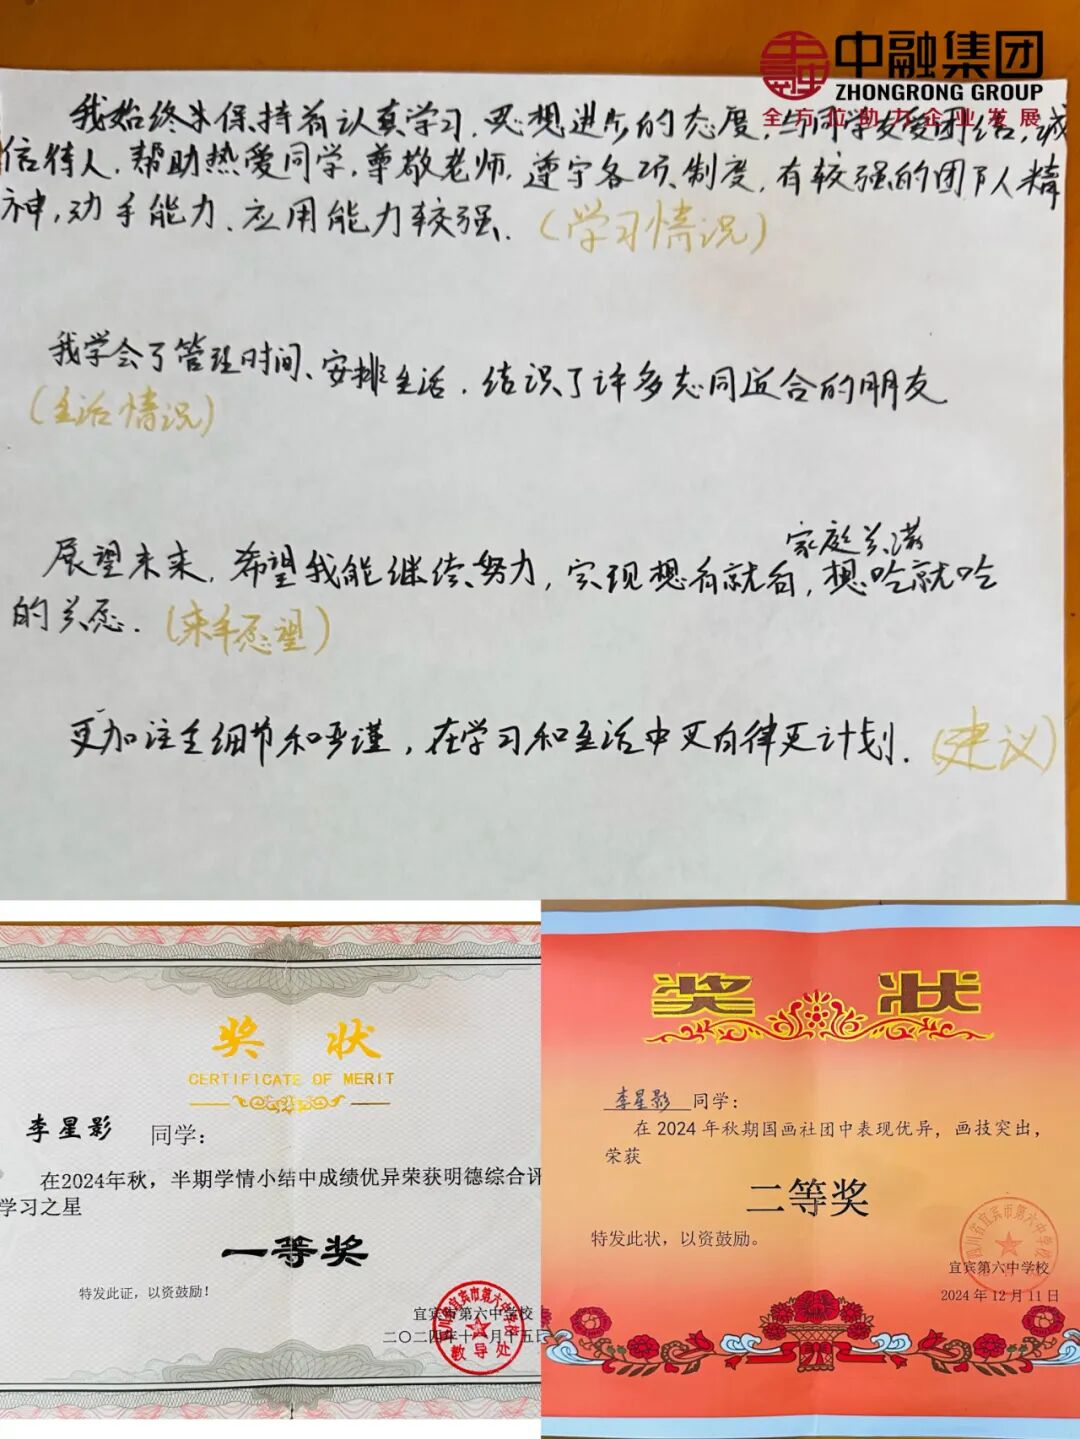 中融集团
ZHONGRONG GROUP
全方位助力企业发展
我始终未保持着认真学习、思想进步的态度,与同学友爱团结,诚
信待人,帮助热爱同学,尊敬老师,遵守各项、制度,有较强的团队人精
神,动手能力、应用能力较强、(学习情况)
我学会了管理时间、安排生活,结识了许多志同道合的朋友
(生活情况)
家庭美满
展望未来,希望我能继续努力,实现想有就有,想吃就吃
的美愿.(来年愿望)
更加注重细节和严谨,在学习和生活中更自律更计划.(建议)
奖状
CERTIFICATE OF MERIT
李星影 同学:
在2024年秋,半期学情小结中成绩优异荣获明德综合评
学习之星
一等奖
特发此证,以资鼓励!
宜宾市第六中学校
二〇二四年十一月十五日
教导处
奖状
李星影 同学:
在 2024 年秋期国画社团中表现优异,画技突出,
荣获
二等奖
特发此状,以资鼓励。
四川省宜宾市第六中学校
宜宾第六中学校
2024 年 12 月 11 日